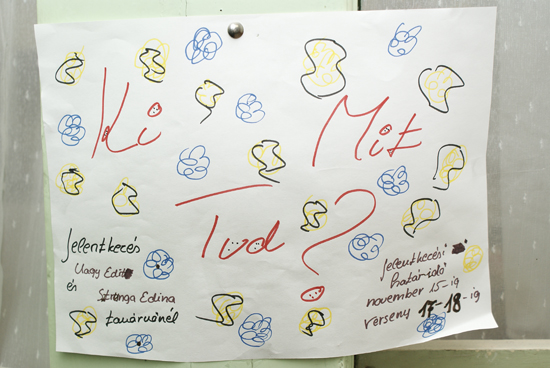 Ki Mit
Tud?
Jelentkezés
Nagy Edit
és
Stranga Edina
tanárnőnél
jelentkezési
határidő
november 15-ig
verseny 17-18-ig